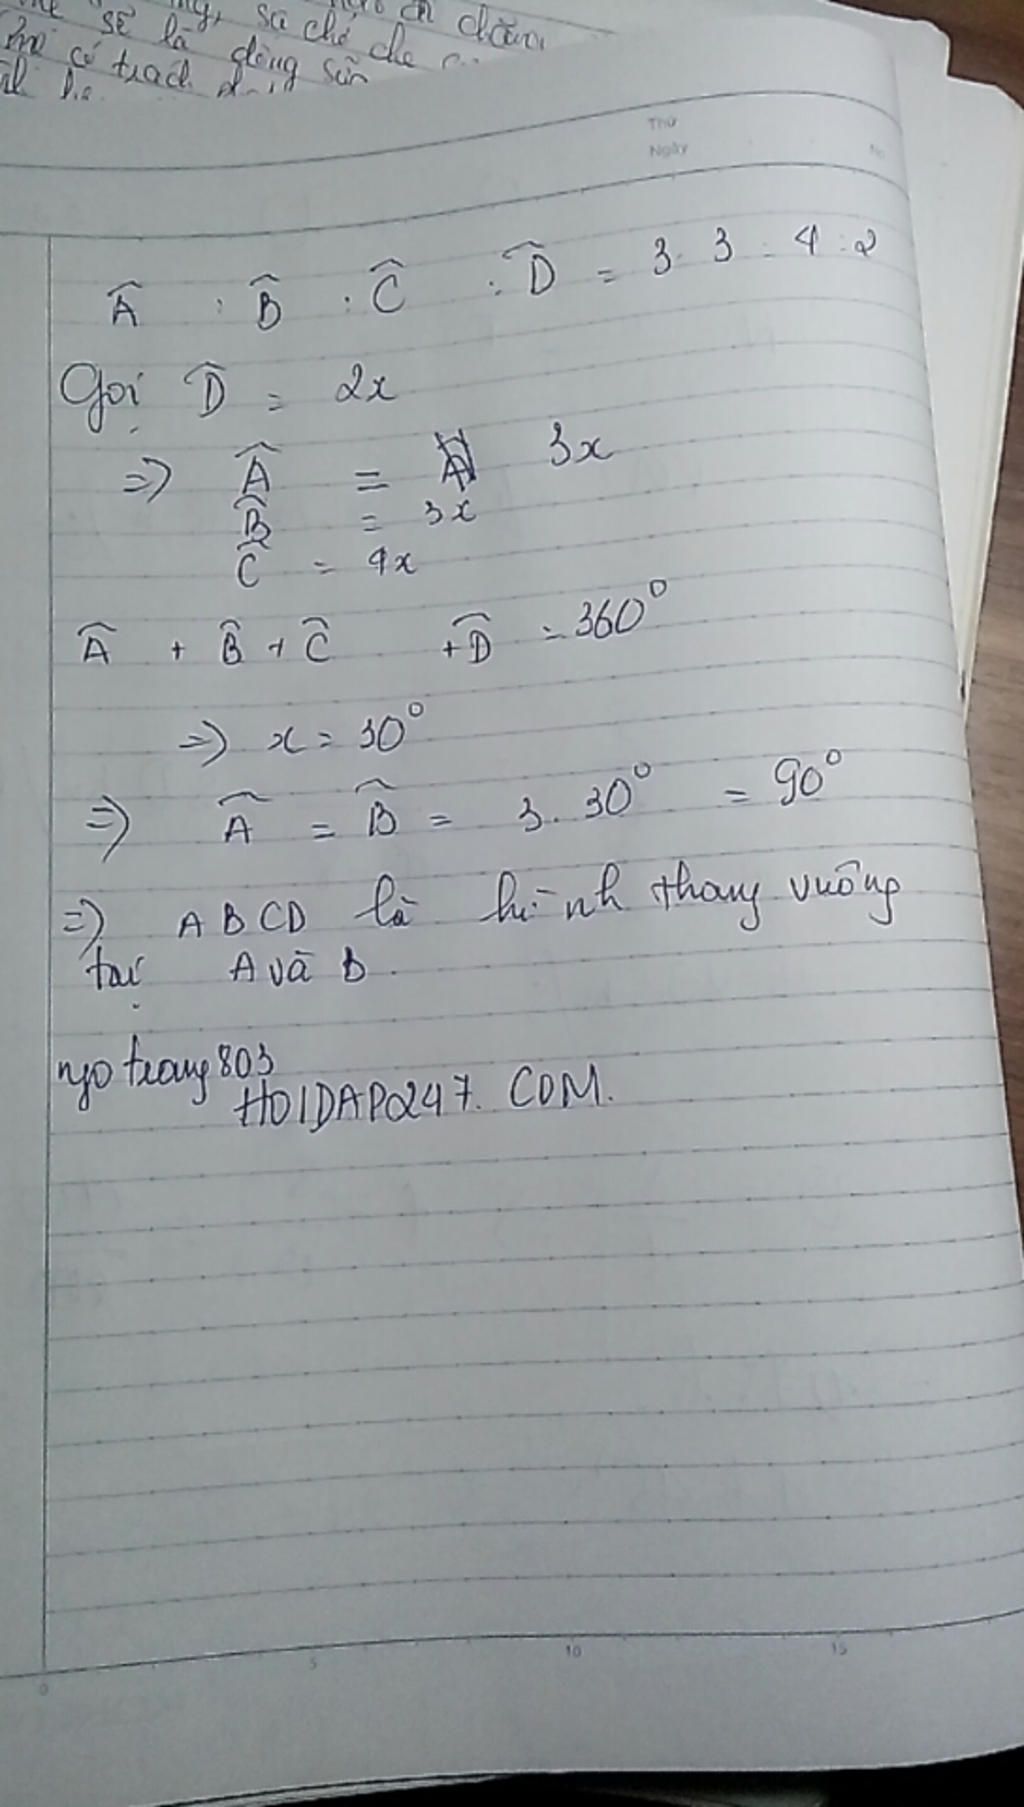 sẽ là sa chó che chăm
có trách dòng sản
Thứ
Ngày No
Â : B̂ : Ĉ : D̂ = 3 : 3 : 4 : 2
Gọi D̂ = 2x
=> Â = 3x
B̂ = 3x
Ĉ = 4x
Â + B̂ + Ĉ + D̂ = 360°
=> x = 30°
=> Â = B̂ = 3. 30° = 90°
=> ABCD là hình thang vuông
tại A và B.
ngo trang803
HOIDAP247. COM.
0 5 10 15